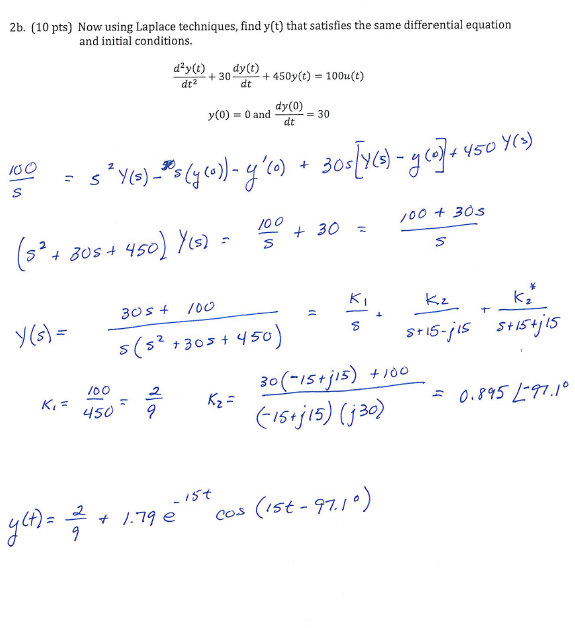 2b. (10 pts) Now using Laplace techniques, find y(t) that satisfies the same differential equation
and initial conditions.
d²y(t)/dt² + 30 dy(t)/dt + 450y(t) = 100u(t)
y(0) = 0 and dy(0)/dt = 30
100/s = s²Y(s) - s(y(0)) - y'(0) + 30s[Y(s) - y(0)] + 450 Y(s)
(s² + 30s + 450) Y(s) = 100/s + 30 = (100 + 30s)/s
Y(s) = (30s + 100)/(s(s² + 30s + 450)) = K₁/s + K₂/(s+15-j15) + K₂*/(s+15+j15)
K₁ = 100/450 = 2/9 K₂ = (30(-15+j15) + 100)/((-15+j15)(j30)) = 0.895 ∠-97.1°
y(t) = 2/9 + 1.79 e^(-15t) cos (15t - 97.1°)